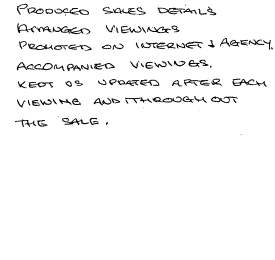 PRODUCED SALES DETAILS
ARRANGED VIEWINGS
PROMOTED ON INTERNET & AGENCY.
ACCOMPANIED VIEWINGS.
KEPT US UPDATED AFTER EACH
VIEWING AND THROUGH OUT
THE SALE.